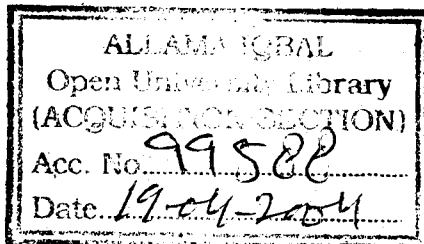 ALLAMA IQBAL
Open University Library
(ACQUISITION SECTION)
Acc. No. 99588
Date. 19-04-2004